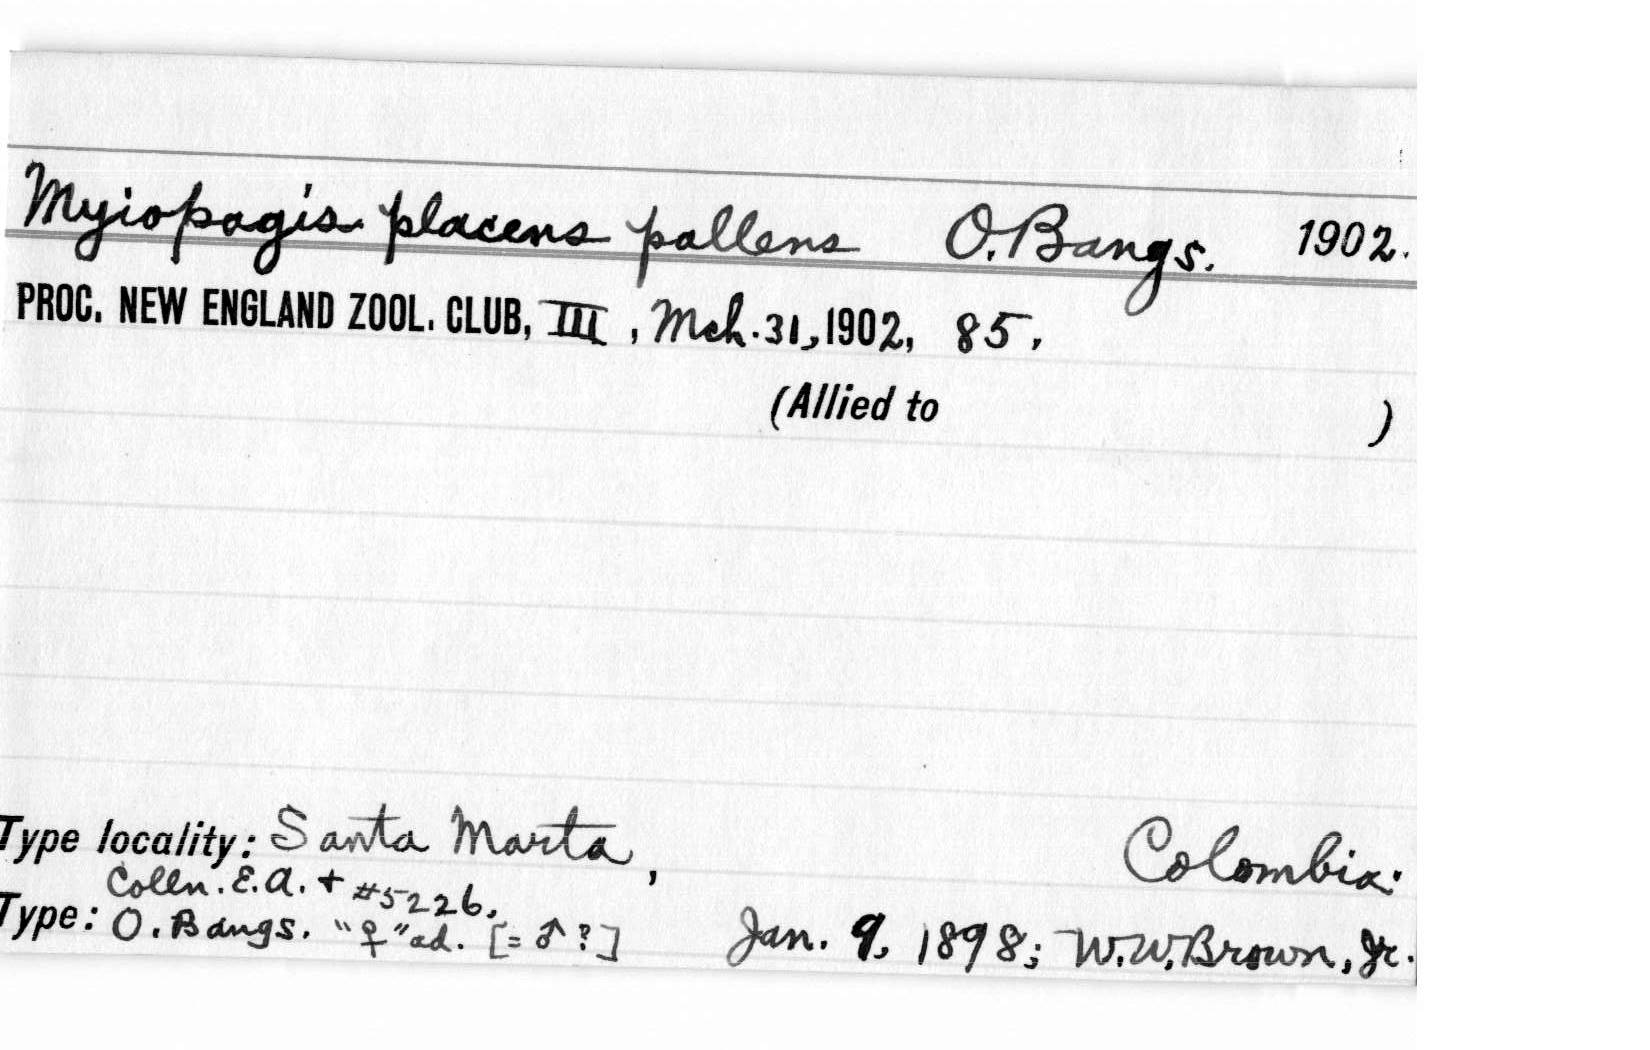 Myiopagis placens pallens O. Bangs. 1902.
PROC. NEW ENGLAND ZOOL. CLUB, III, Mch. 31, 1902, 85.
(Allied to )
Type locality: Santa Marta, Colombia.
Colln. E. A. + #5226.
Type: O. Bangs. "♀" ad. [= ♂ ?] Jan. 9, 1898; W. W. Brown, Jr.